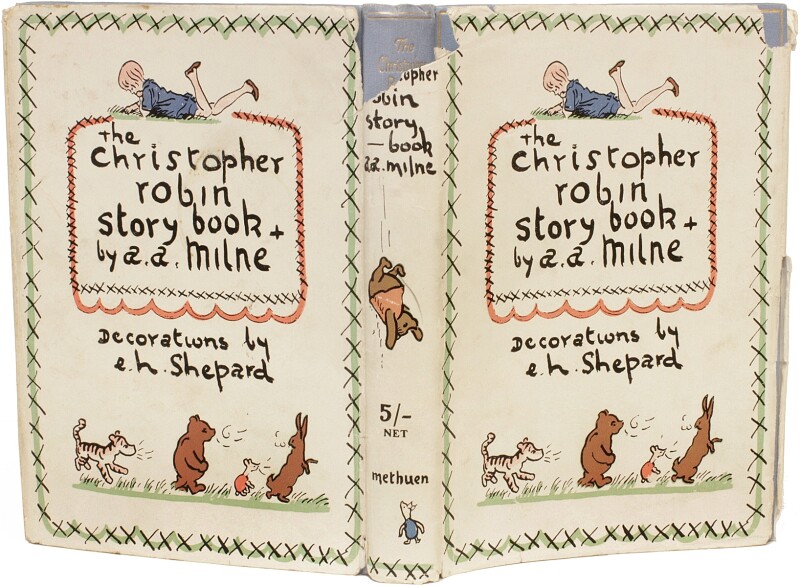 the
christopher
robin
story book +
by a.a. milne
Decorations by
e.h. Shepard
The
Christopher
opher
obin
story
— book
a.a. milne
5/-
NET
methuen
the
christopher
robin
story book +
by a.a. milne
Decorations by
e.h. Shepard